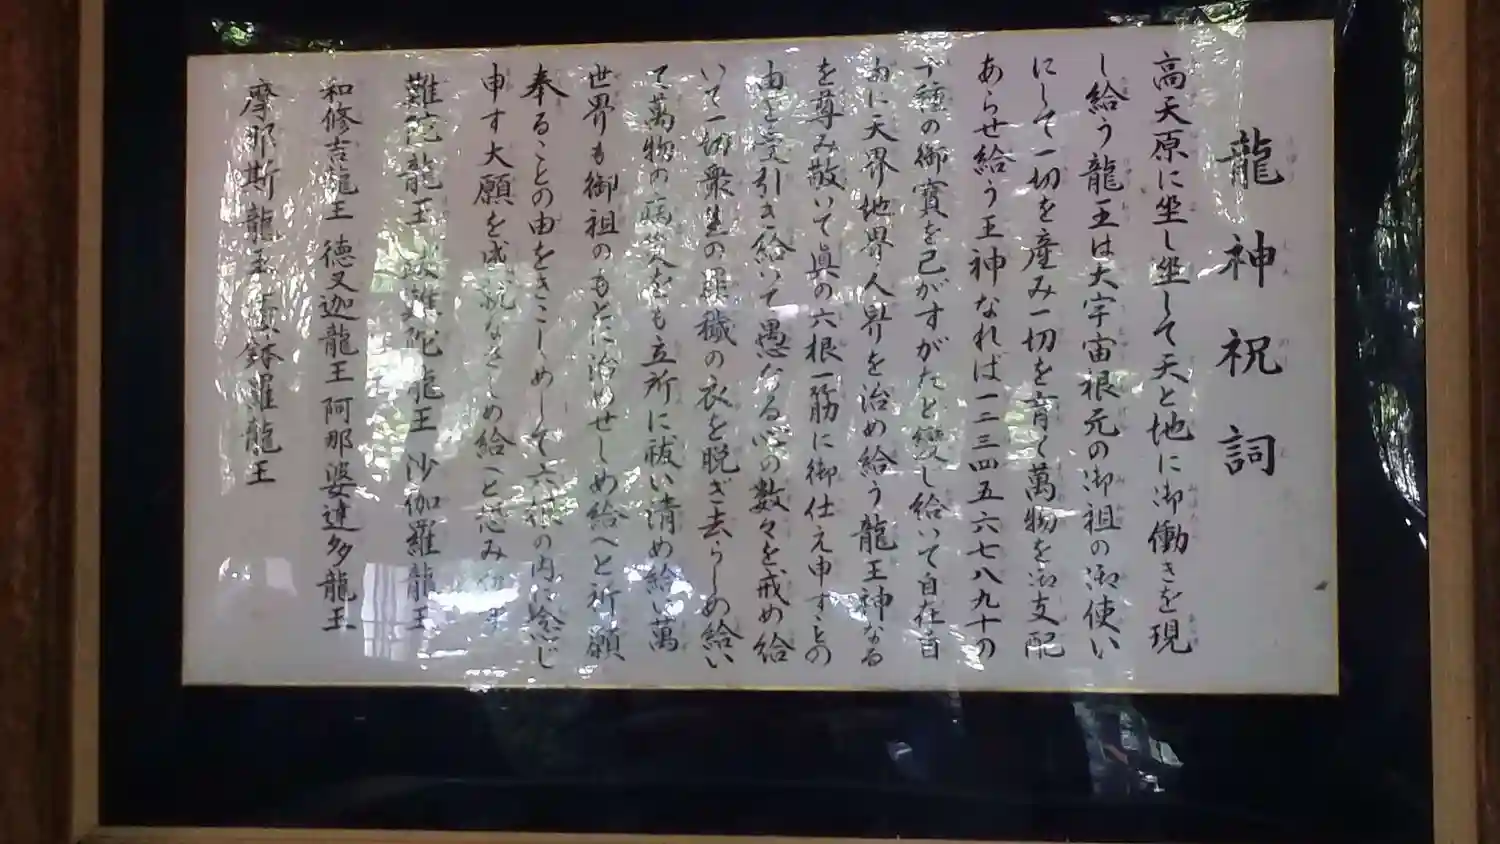 龍神祝詞
高天原に坐し坐して天と地に御働きを現
し給う龍王は大宇宙根元の御祖の御使い
にして一切を産み一切を育て萬物を御支配
あらせ給う王神なれば一二三四五六七八九十の
十種の御寶を己がすがたと變じ給いて自在自
由に天界地界人界を治め給う龍王神なる
を尊み敬いて眞の六根一筋に御仕え申すことの
由を受引き給いて愚なる心の数々を戒め給
いて一切衆生の罪穢の衣を脱ぎ去らしめ給い
て萬物の病災をも立所に祓い清め給い萬
世界も御祖のもとに治めせしめ給へと祈願
奉ることの由をきこしめして六根の内に念じ
申す大願を成就なさしめ給へと恐み
難陀龍王 跋難陀龍王 沙伽羅龍王
和修吉龍王 徳叉迦龍王 阿那婆達多龍王
摩那斯龍王 優鉢羅龍王